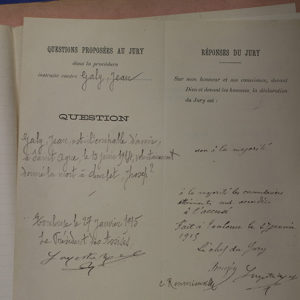 QUESTIONS PROPOSÉES AU JURY
dans la procédure
instruite contre Galy, Jean
QUESTION
Galy, Jean, est-il coupable d'avoir,
à Saint Agne, le 13 juin 1914, volontairement
donné la mort à Joseph ?
Toulouse le 27 janvier 1915
Le Président des Assises
RÉPONSES DU JURY
Sur mon honneur et ma conscience, devant
Dieu et devant les hommes, la déclaration
du Jury est :
non à la majorité
à la majorité les circonstances
atténuantes sont accordées
à l'accusé
Fait à Toulouse le 27 janvier
1915
Le chef du Jury